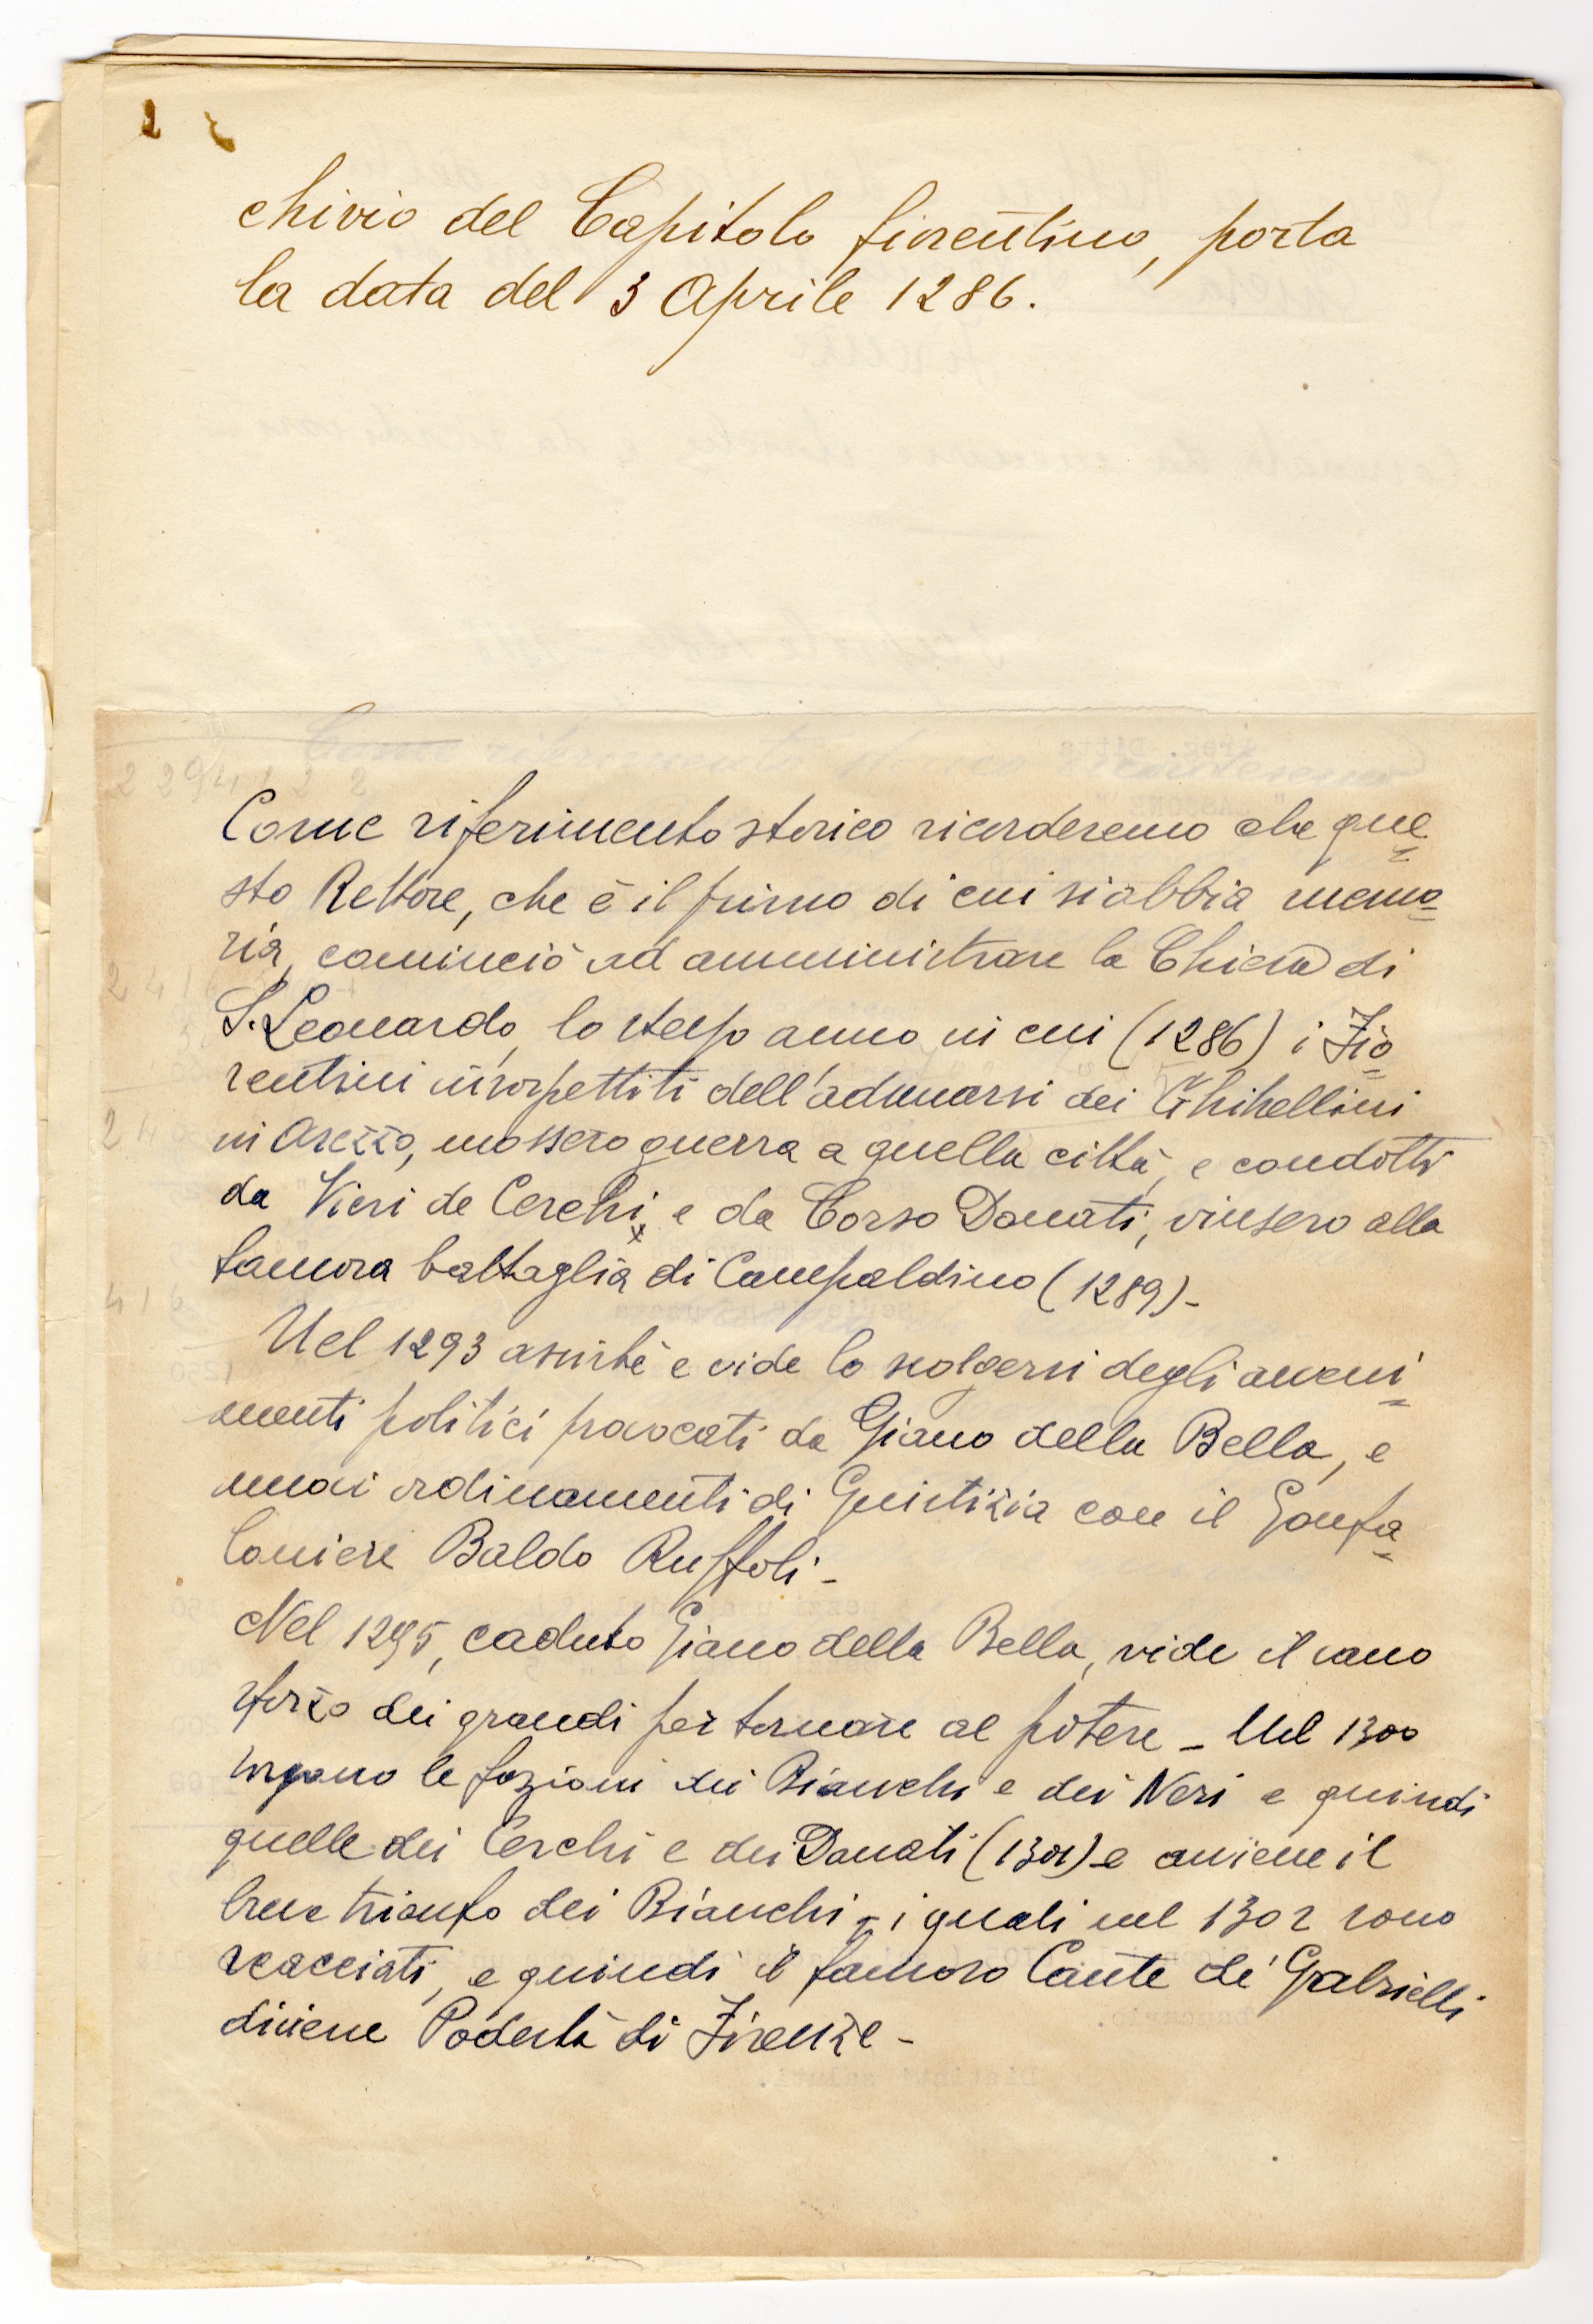 chivio del Capitolo fiorentino, porta
la data del 3 Aprile 1286.
Come riferimento storico ricorderemo che que=
sto Rettore, che è il primo di cui si abbia memo=
ria, cominciò ad amministrare la Chiesa di
S. Leonardo, lo stesso anno in cui (1286) i Fio=
rentini insospettiti dell'adunarsi dei Ghibellini
in Arezzo, mossero guerra a quella città, e condotti
da Vieri de Cerchi, e da Corso Donati, vinsero alla
famosa battaglia di Campaldino (1289)-
Nel 1293 assisté e vide lo svolgersi degli avveni=
menti politici provocati da Giano della Bella, e
suoi ordinamenti di Giustizia con il Gonfa=
loniere Baldo Ruffoli-
Nel 1295, caduto Giano della Bella, vide il vano
sforzo dei grandi per tornare al potere - Nel 1300
sorgono le fazioni dei Bianchi e dei Neri e quindi
quelle dei Cerchi e dei Donati (1301) e avviene il
breve trionfo dei Bianchi, i quali nel 1302 sono
scacciati, e quindi il famoso Cante de' Gabrielli
diviene Podestà di Firenze-